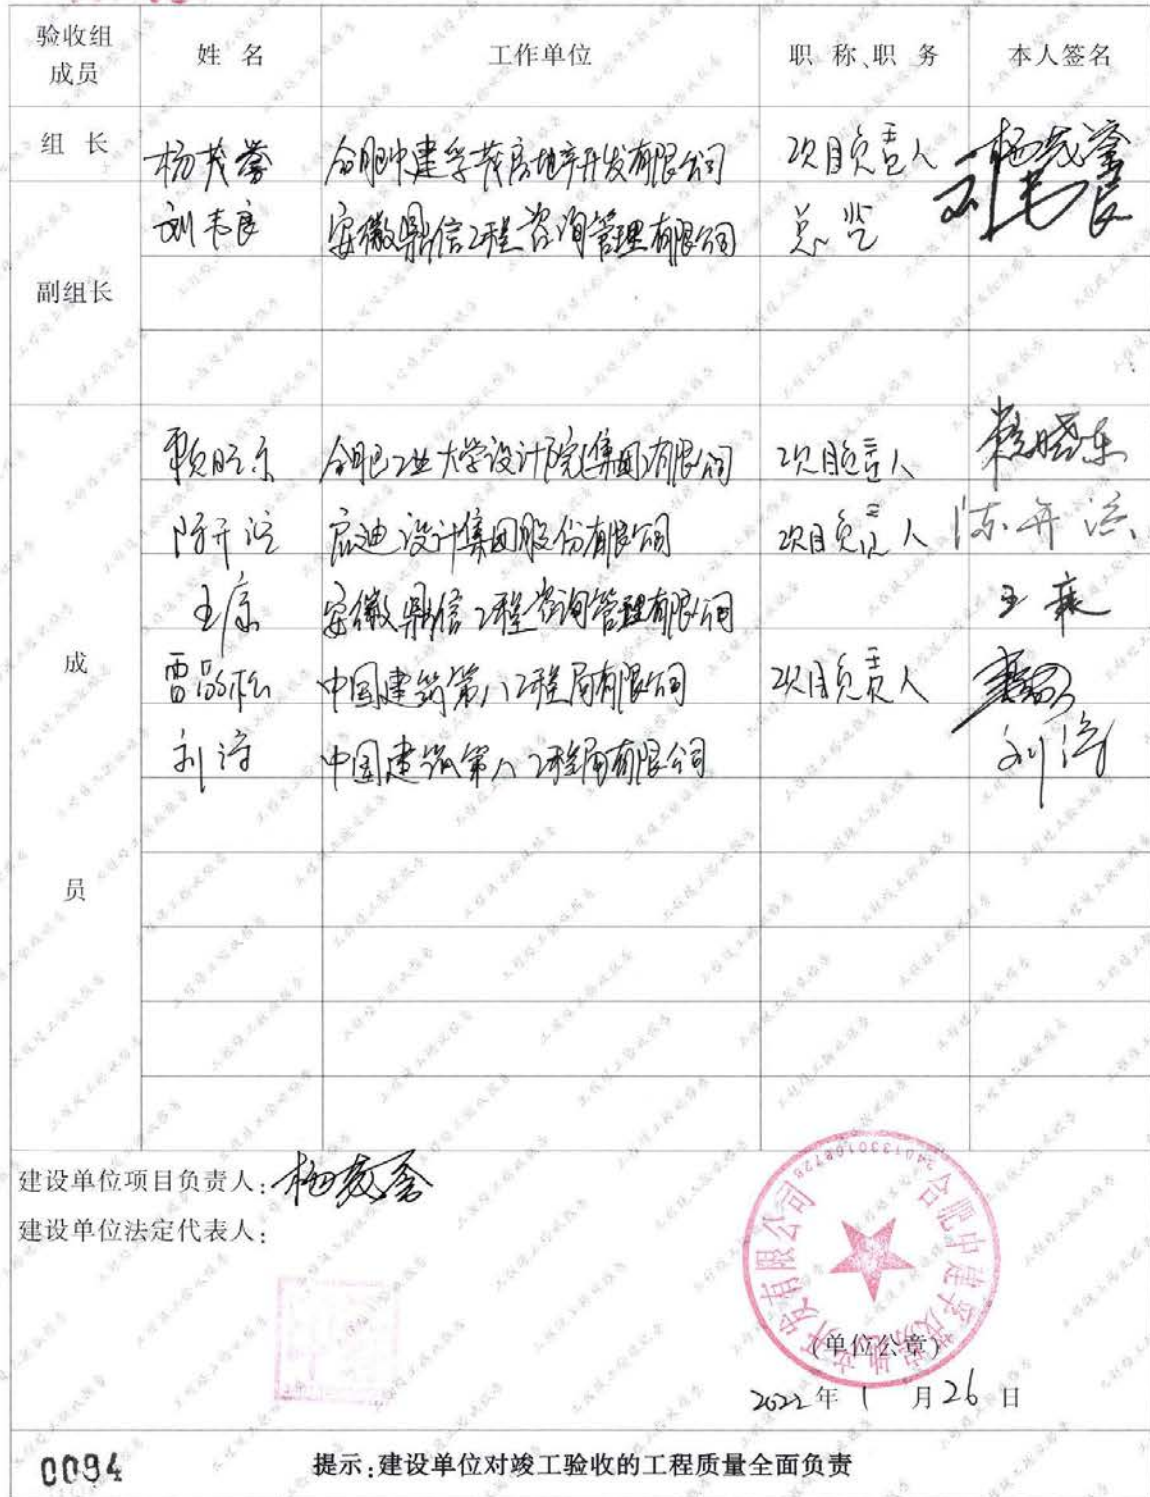 验收组成员 姓 名 工作单位 职 称、职 务 本人签名
组 长 杨茂誉 合肥中建孚茂房地产开发有限公司 项目负责人
刘韦良 安徽鼎信工程咨询管理有限公司 总监
副组长
赖晓东 合肥工业大学设计院(集团)有限公司 项目负责人 赖晓东
启迪设计集团股份有限公司 项目负责人
王康 安徽鼎信工程咨询管理有限公司 王康
中国建筑第八工程局有限公司 项目负责人
刘涛 中国建筑第八工程局有限公司 刘涛
成
员
建设单位项目负责人:
建设单位法定代表人:
合肥中建孚茂房地产开发有限公司
(单位公章)
2022年 1 月26 日
0094 提示:建设单位对竣工验收的工程质量全面负责